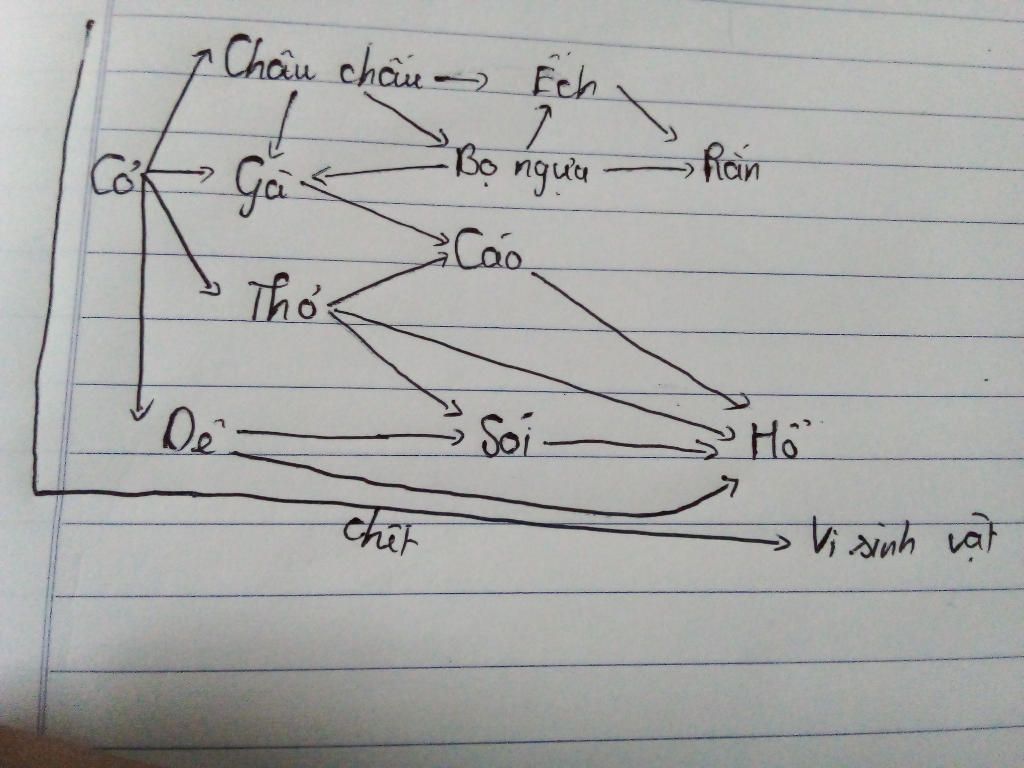 Châu chấu Ếch
Cỏ Gà Bọ ngựa Rắn
Cáo
Thỏ
Dê Sói Hổ
Chết Vi sinh vật